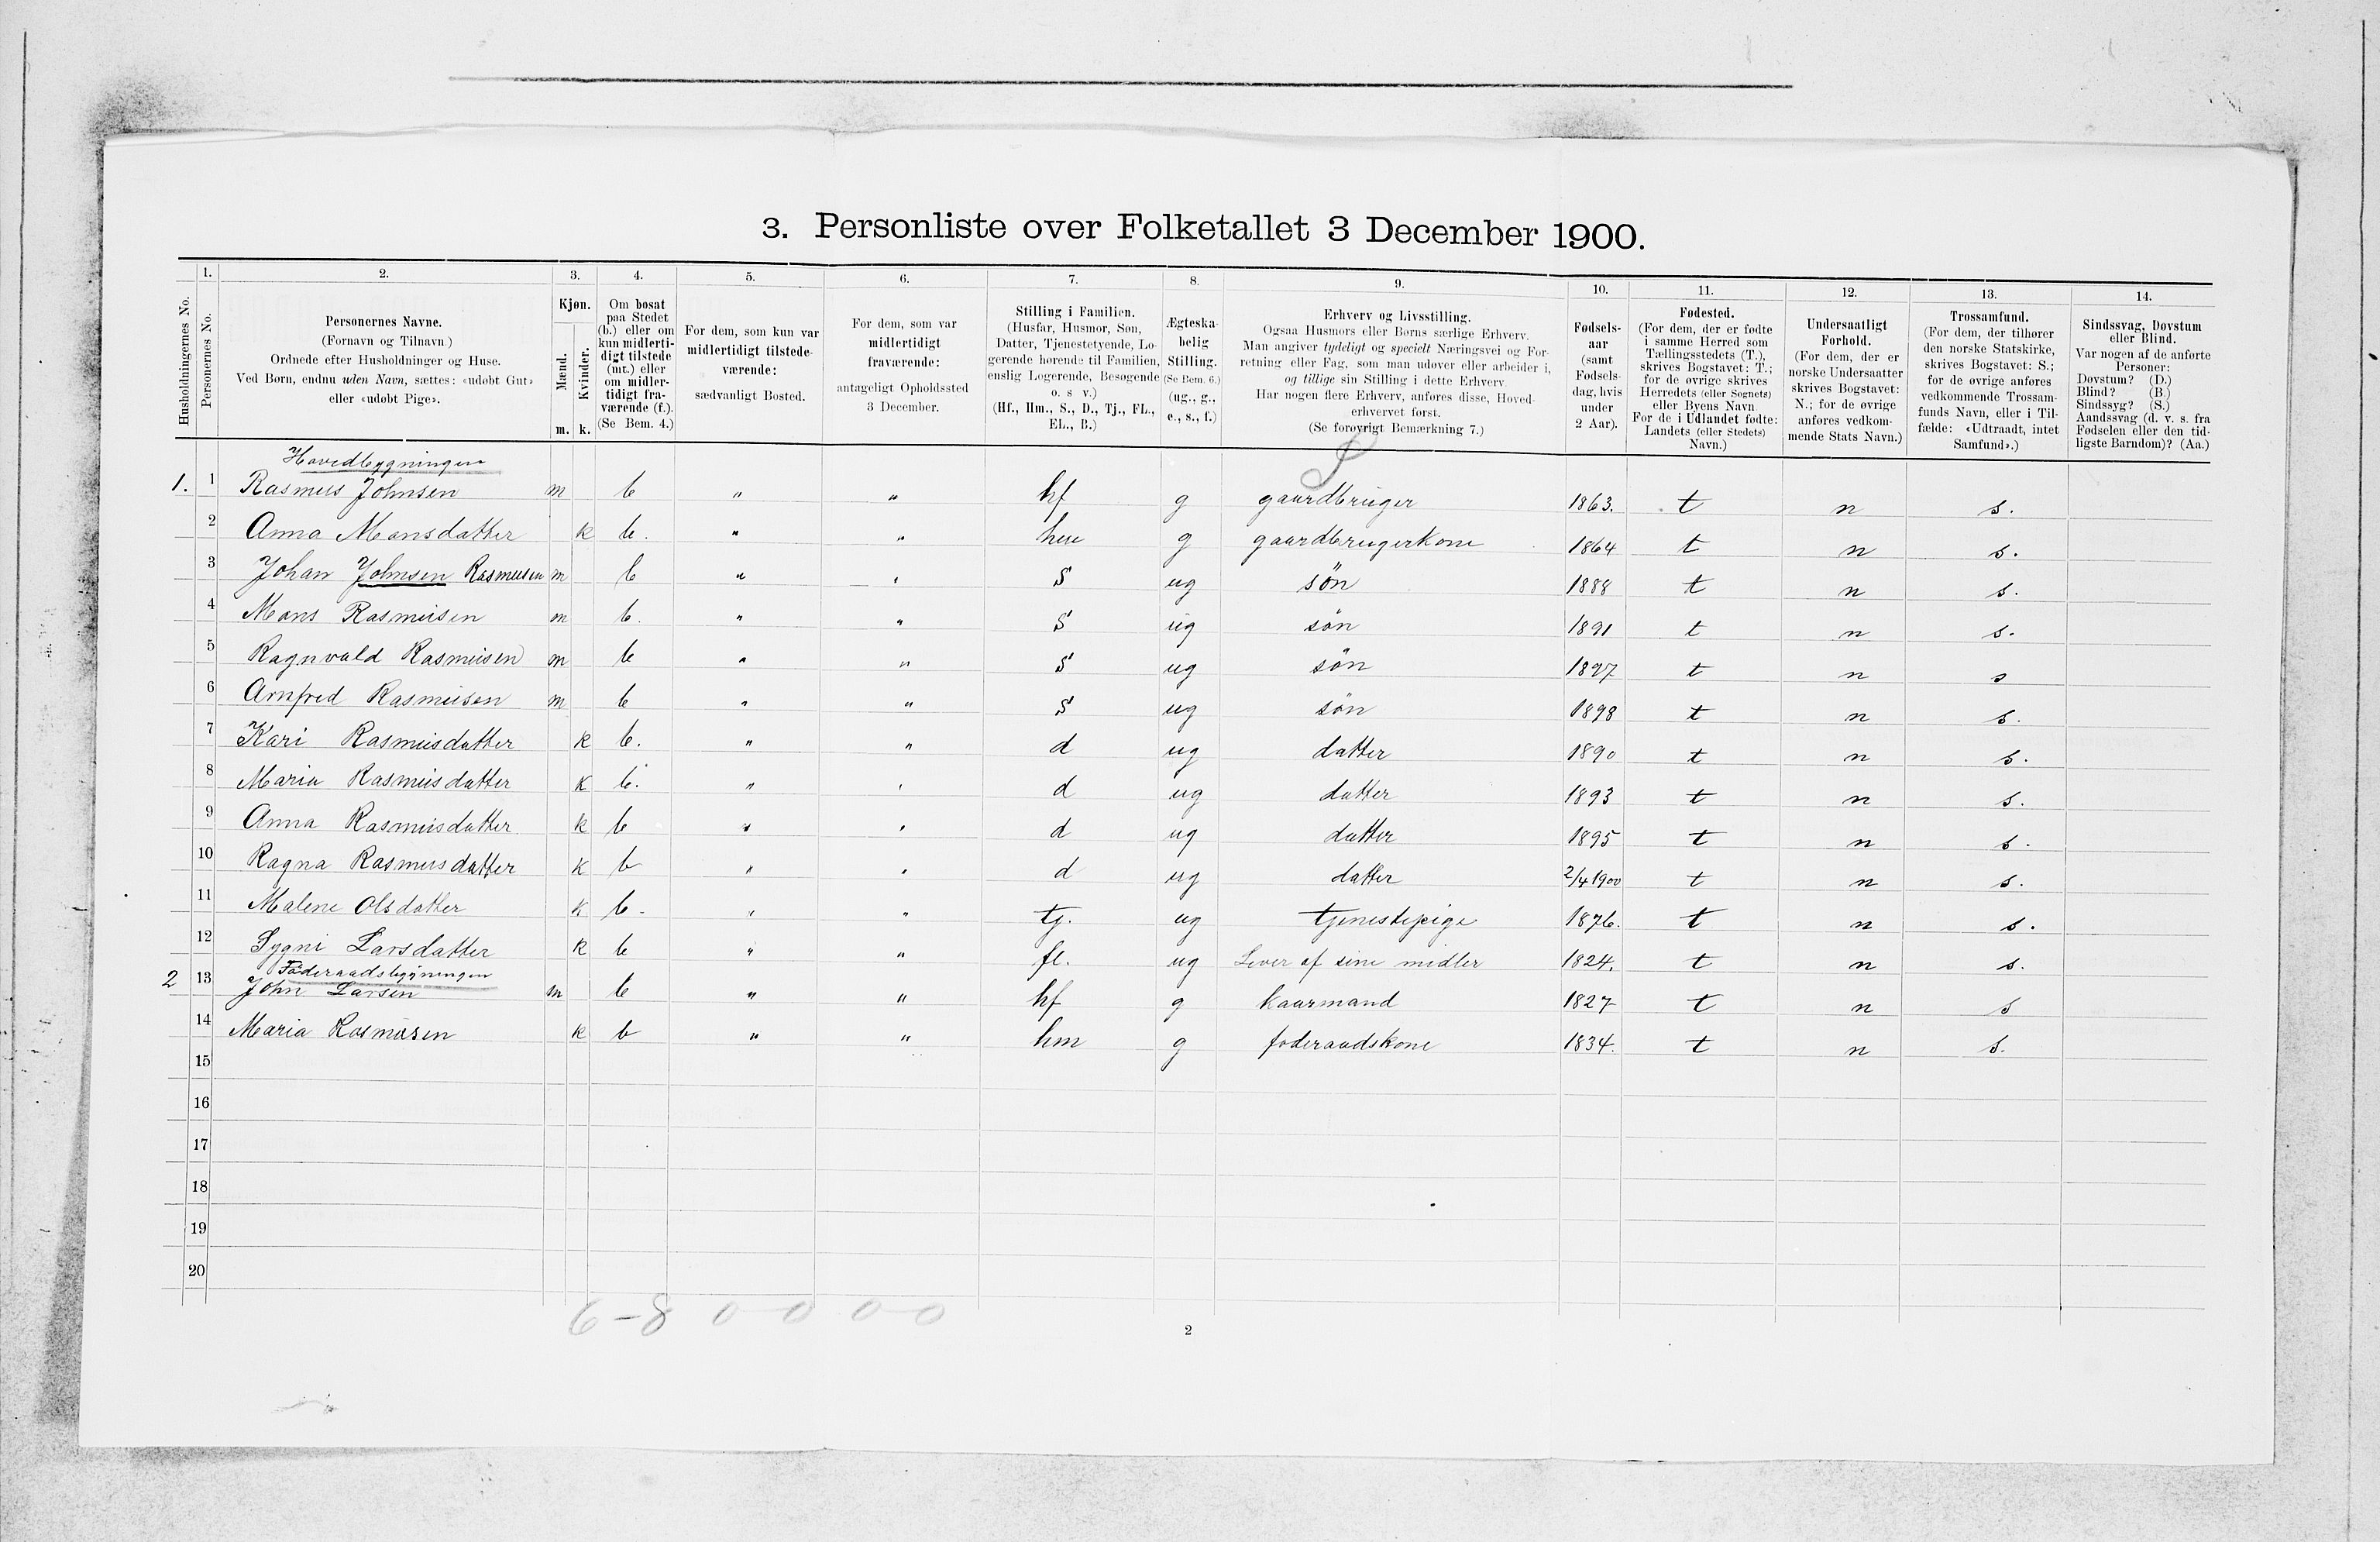 3. Personliste over Folketallet 3 December 1900.
1. 2. 3. 4. 5. 6. 7. 8. 9. 10. 11. 12. 13. 14.
Husholdningernes No.
Personernes No.
Personernes Navne.
(Fornavn og Tilnavn.)
Ordnede efter Husholdninger og Huse.
Ved Børn, endnu uden Navn, sættes: «udøbt Gut»
eller «udøbt Pige».
Kjøn.
Mænd.
Kvinder.
m. k.
Om bosat
paa Stedet
(b.) eller om
kun midlerti-
digt tilstede
(mt.) eller
om midler-
tidigt fra-
værende (f.).
(Se Bem. 4.)
For dem, som kun var
midlertidigt tilstede-
værende:
sædvanligt Bosted.
For dem, som var
midlertidigt
fraværende:
antageligt Opholdssted
3 December.
Stilling i Familien.
(Husfar, Husmor, Søn,
Datter, Tjenestetyende, Lo-
gerende hørende til Familien,
enslig Logerende, Besøgende
o. s v.)
(Hf., Hm., S., D., Tj., FL.,
EL., B.)
Ægteska-
belig
Stilling.
(Se Bem. 6.)
(ug., g.,
e., s., f.)
Erhverv og Livsstilling.
Ogsaa Husmors eller Børns særlige Erhverv.
Man angiver tydeligt og specielt Næringsvei og For-
retning eller Fag, som man udøver eller arbeider i,
og tillige sin Stilling i dette Erhverv.
Har nogen flere Erhverv, anføres disse, Hoved-
erhvervet først.
(Se forøvrigt Bemærkning 7.)
Fødsels-
aar
(samt
Fødsels-
dag, hvis
under
2 Aar).
Fødested.
(For dem, der er fødte
i samme Herred som
Tællingsstedets (T.),
skrives Bogstavet: T.;
for de øvrige skrives
Herredets (eller Sognets)
eller Byens Navn.
For de i Udlandet fødte:
Landets (eller Stedets)
Navn.)
Undersaatligt
Forhold.
(For dem, der er
norske Undersaatter
skrives Bogstavet:
N.; for de øvrige
anføres vedkom-
mende Stats Navn.)
Trossamfund.
(For dem, der tilhører
den norske Statskirke,
skrives Bogstavet: S.;
for de øvrige anføres
vedkommende Trossam-
funds Navn, eller i Til-
fælde: «Udtraadt, intet
Samfund».)
Sindssvag, Døvstum
eller Blind.
Var nogen af de anførte
Personer:
Døvstum? (D.)
Blind? (B.)
Sindssyg? (S.)
Aandssvag (d. v. s. fra
Fødselen eller den tid-
ligste Barndom)? (Aa.)
Hovedbygningen
1. 1 Rasmus Johnsen m b " " hf g gaardbruger 1863. t n s.
2 Anna Monsdatter k b. " " hm g gaardbrugerkone 1864 t n s.
3 Johan Johnsen Rasmusen m b " " S ug søn 1888 t n s.
4 Mons Rasmusen m b. " " S ug søn 1891 t n s.
5 Ragnvald Rasmusen m b " " S ug søn 1897 t n s
6 Arnfred Rasmusen m b " " S ug søn 1898 t n s.
7 Kari Rasmusdatter k b. " " d ug datter 1890 t n s.
8 Maria Rasmusdatter k b. " " d ug datter 1893 t n s.
9 Anna Rasmusdatter k b " " d ug datter 1895 t n s.
10 Ragna Rasmusdatter k b " " d ug datter 2/4 1900 t n s.
11 Malene Olsdatter k b. " " tj. ug tjenestepige 1876. t n s.
12 Sygni Larsdatter k b " " fl. ug Lever af sine midler 1824. t n s.
Føderaadsbygningen
2 13 John Larsen m b " " hf g kaarmand 1827 t n s
14 Maria Rasmusen k b " " hm g føderaadskone 1834. t n s.
15
16
17
18
19
20
6-8 0-0 0-0
2